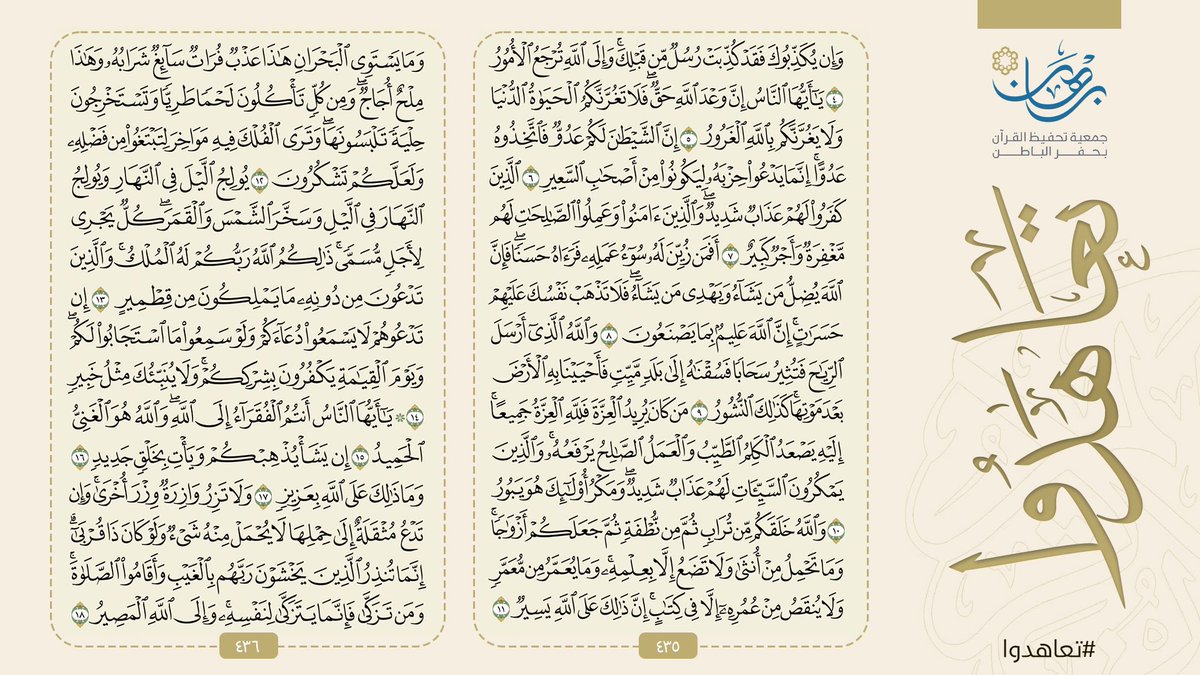 برهان
جمعية تحفيظ القرآن
بحفر الباطن
تعاهدوا
#تعاهدوا
وَإِن يُكَذِّبُوكَ فَقَدْ كُذِّبَتْ رُسُلٌ مِّن قَبْلِكَۚ وَإِلَى ٱللَّهِ تُرْجَعُ ٱلْأُمُورُ
٤ يَٰٓأَيُّهَا ٱلنَّاسُ إِنَّ وَعْدَ ٱللَّهِ حَقٌّۖ فَلَا تَغُرَّنَّكُمُ ٱلْحَيَوٰةُ ٱلدُّنْيَا
وَلَا يَغُرَّنَّكُم بِٱللَّهِ ٱلْغَرُورُ ٥ إِنَّ ٱلشَّيْطَٰنَ لَكُمْ عَدُوٌّ فَٱتَّخِذُوهُ
عَدُوًّاۚ إِنَّمَا يَدْعُوا۟ حِزْبَهُۥ لِيَكُونُوا۟ مِنْ أَصْحَٰبِ ٱلسَّعِيرِ ٦ ٱلَّذِينَ
كَفَرُوا۟ لَهُمْ عَذَابٌ شَدِيدٌۖ وَٱلَّذِينَ ءَامَنُوا۟ وَعَمِلُوا۟ ٱلصَّٰلِحَٰتِ لَهُم
مَّغْفِرَةٌ وَأَجْرٌ كَبِيرٌ ٧ أَفَمَن زُيِّنَ لَهُۥ سُوٓءُ عَمَلِهِۦ فَرَءَاهُ حَسَنًاۖ فَإِنَّ
ٱللَّهَ يُضِلُّ مَن يَشَآءُ وَيَهْدِى مَن يَشَآءُۖ فَلَا تَذْهَبْ نَفْسُكَ عَلَيْهِمْ
حَسَرَٰتٍۚ إِنَّ ٱللَّهَ عَلِيمٌۢ بِمَا يَصْنَعُونَ ٨ وَٱللَّهُ ٱلَّذِىٓ أَرْسَلَ
ٱلرِّيَٰحَ فَتُثِيرُ سَحَابًا فَسُقْنَٰهُ إِلَىٰ بَلَدٍ مَّيِّتٍ فَأَحْيَيْنَا بِهِ ٱلْأَرْضَ
بَعْدَ مَوْتِهَاۚ كَذَٰلِكَ ٱلنُّشُورُ ٩ مَن كَانَ يُرِيدُ ٱلْعِزَّةَ فَلِلَّهِ ٱلْعِزَّةُ جَمِيعًاۚ
إِلَيْهِ يَصْعَدُ ٱلْكَلِمُ ٱلطَّيِّبُ وَٱلْعَمَلُ ٱلصَّٰلِحُ يَرْفَعُهُۥۚ وَٱلَّذِينَ
يَمْكُرُونَ ٱلسَّيِّـَٔاتِ لَهُمْ عَذَابٌ شَدِيدٌۖ وَمَكْرُ أُو۟لَٰٓئِكَ هُوَ يَبُورُ
١٠ وَٱللَّهُ خَلَقَكُم مِّن تُرَابٍ ثُمَّ مِن نُّطْفَةٍ ثُمَّ جَعَلَكُمْ أَزْوَٰجًاۚ
وَمَا تَحْمِلُ مِنْ أُنثَىٰ وَلَا تَضَعُ إِلَّا بِعِلْمِهِۦۚ وَمَا يُعَمَّرُ مِن مُّعَمَّرٍ
وَلَا يُنقَصُ مِنْ عُمُرِهِۦٓ إِلَّا فِى كِتَٰبٍۚ إِنَّ ذَٰلِكَ عَلَى ٱللَّهِ يَسِيرٌ ١١
٤٣٥
وَمَا يَسْتَوِى ٱلْبَحْرَانِ هَٰذَا عَذْبٌ فُرَاتٌ سَآئِغٌ شَرَابُهُۥ وَهَٰذَا
مِلْحٌ أُجَاجٌۖ وَمِن كُلٍّ تَأْكُلُونَ لَحْمًا طَرِيًّا وَتَسْتَخْرِجُونَ
حِلْيَةً تَلْبَسُونَهَاۖ وَتَرَى ٱلْفُلْكَ فِيهِ مَوَاخِرَ لِتَبْتَغُوا۟ مِن فَضْلِهِۦ
وَلَعَلَّكُمْ تَشْكُرُونَ ١٢ يُولِجُ ٱلَّيْلَ فِى ٱلنَّهَارِ وَيُولِجُ
ٱلنَّهَارَ فِى ٱلَّيْلِ وَسَخَّرَ ٱلشَّمْسَ وَٱلْقَمَرَۖ كُلٌّ يَجْرِى
لِأَجَلٍ مُّسَمًّىۚ ذَٰلِكُمُ ٱللَّهُ رَبُّكُمْ لَهُ ٱلْمُلْكُۚ وَٱلَّذِينَ
تَدْعُونَ مِن دُونِهِۦ مَا يَمْلِكُونَ مِن قِطْمِيرٍ ١٣ إِن
تَدْعُوهُمْ لَا يَسْمَعُوا۟ دُعَآءَكُمْ وَلَوْ سَمِعُوا۟ مَا ٱسْتَجَابُوا۟ لَكُمْۖ
وَيَوْمَ ٱلْقِيَٰمَةِ يَكْفُرُونَ بِشِرْكِكُمْۚ وَلَا يُنَبِّئُكَ مِثْلُ خَبِيرٍ
١٤ ۞ يَٰٓأَيُّهَا ٱلنَّاسُ أَنتُمُ ٱلْفُقَرَآءُ إِلَى ٱللَّهِۖ وَٱللَّهُ هُوَ ٱلْغَنِىُّ
ٱلْحَمِيدُ ١٥ إِن يَشَأْ يُذْهِبْكُمْ وَيَأْتِ بِخَلْقٍ جَدِيدٍ ١٦
وَمَا ذَٰلِكَ عَلَى ٱللَّهِ بِعَزِيزٍ ١٧ وَلَا تَزِرُ وَازِرَةٌ وِزْرَ أُخْرَىٰۚ وَإِن
تَدْعُ مُثْقَلَةٌ إِلَىٰ حِمْلِهَا لَا يُحْمَلْ مِنْهُ شَىْءٌ وَلَوْ كَانَ ذَا قُرْبَىٰٓۗ
إِنَّمَا تُنذِرُ ٱلَّذِينَ يَخْشَوْنَ رَبَّهُم بِٱلْغَيْبِ وَأَقَامُوا۟ ٱلصَّلَوٰةَۚ
وَمَن تَزَكَّىٰ فَإِنَّمَا يَتَزَكَّىٰ لِنَفْسِهِۦۚ وَإِلَى ٱللَّهِ ٱلْمَصِيرُ ١٨
٤٣٦